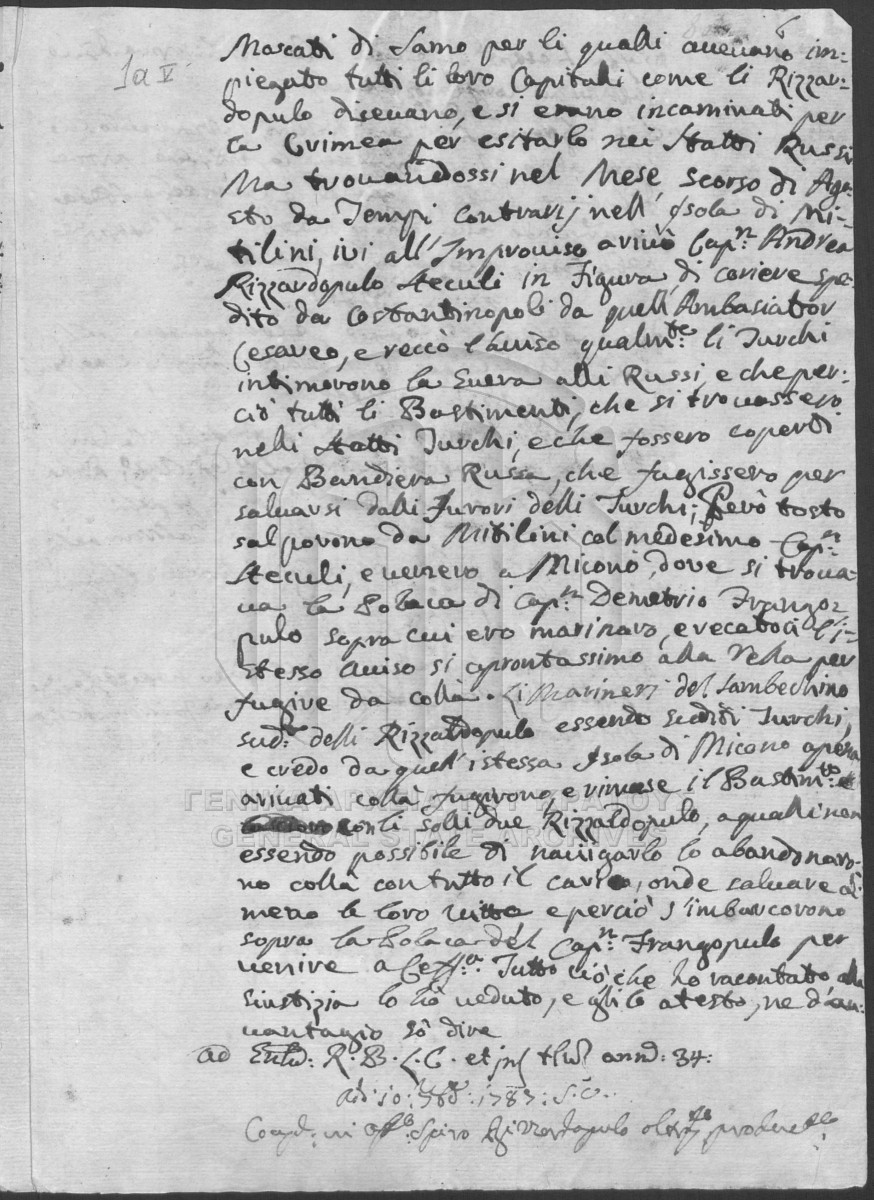 6
1a V.
Moscati di Samo per li qualli aueuano im-
piegato tutti li loro Capitali come li Rizzar-
dopulo diseuano, e si erano incaminati per
la Crimea per esitarlo nei Statti Russi
Ma trouandossi nel Mese scorso di Ago-
sto da Tempi contrarij nell' Isola di Mi-
tilini, iui all' Improuiso ariuò Cap.n Andrea
Rizzardopulo Steculi in Figura di coriere spe-
dito da Costantinopoli da quell' Ambasiator
Cesareo, e reccò l'auiso qualm.te li Turchi
intimorono la Guera alli Russi, e che per-
ciò tutti li Bastimenti, che si trouassero
nelli Statti Turchi, e che fossero coperti
con Bandiera Russa, che fugissero per
saluarsi dalli Furori delli Turchi; Però tosto
salporono da Mitilini col medesimo Cap.n
Steculi, e uenero a Miconò, dove si troua-
ua la Polaca di Cap.n Demetrio Frango-
pulo sopra cui ero marinaro, e recatoci l'i-
stesso auiso si aprontassimo alla Vella per
fugire da collà. Li Marineri del Sambechino
sud.to delli Rizzardopulo essendo suditi Turchi,
e credo da quell'istessa Isola di Micono apena
ariuati collà fugirono, e rimase il Bastim.to
con li solli due Rizzardopulo, a qualli non
essendo possibile di nauigarlo lo abandonaro-
no collà con tutto il carico, onde saluare al-
meno le loro uitte e perciò s'imbarcorono
sopra la Polaca del Cap.n Frangopulo per
uenire a Ceff.a. Tutto ciò che ho racontato alla
Giustizia lo hò ueduto, e gli lo atesto, ne d'au-
uantagio sò dire
ad R. B. L. C. et annõ: 34:
Adi 10: 7bre: 1787: S. V.
Spiro Rizzardopulo
ΓΕΝΙΚΑ ΑΡΧΕΙΑ ΤΟΥ ΚΡΑΤΟΥΣ
GENERAL STATE ARCHIVES